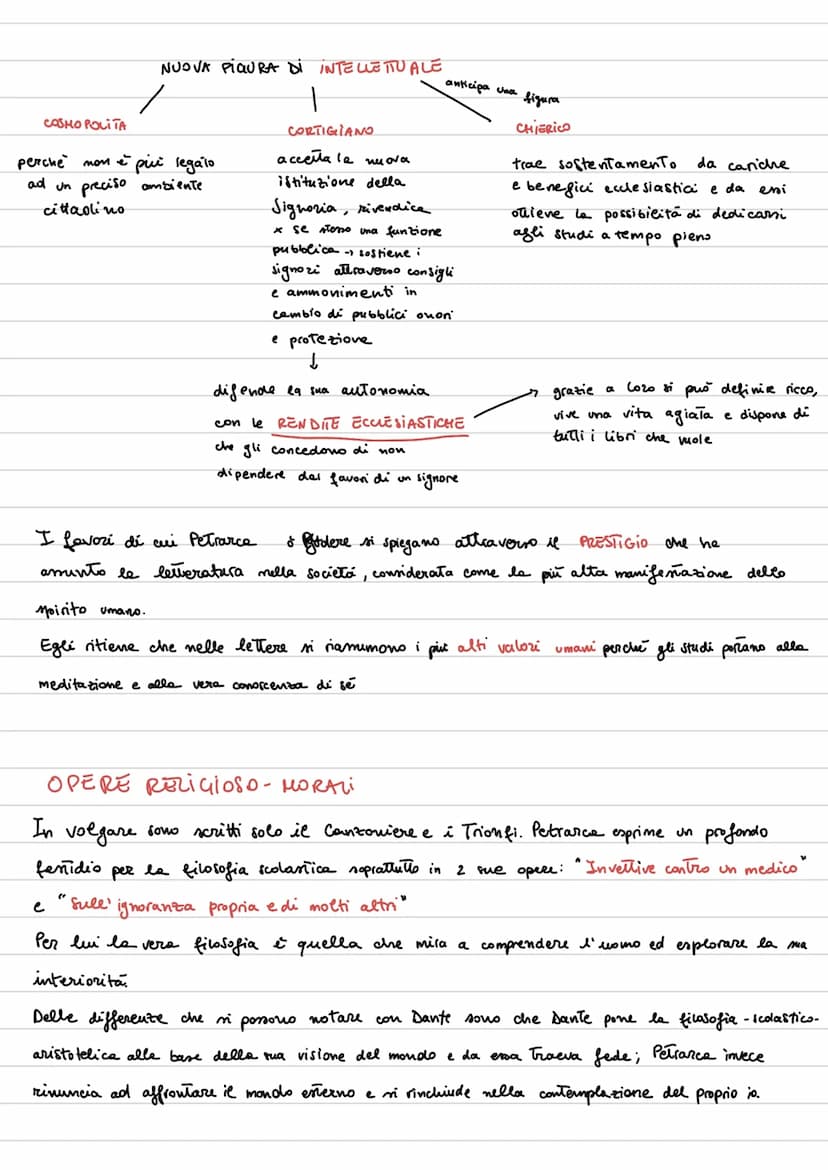 NUOVA FIGURA DI INTELLETTUALE
anticipa una figura
COSMOPOLITA
perchè non è più legato
ad un preciso ambiente
cittadino
CORTIGIANO
accetta la nuova
istituzione della
Signoria, rivendica
x se stesso una funzione
pubblica → sostiene i
signori attraverso consigli
e ammonimenti in
cambio di pubblici onori
e protezione
↓
difende la sua autonomia
con le RENDITE ECCLESIASTICHE
che gli concedono di non
dipendere dai favori di un signore
CHIERICO
trae sostentamento da cariche
e benefici ecclesiastici e da essi
ottiene la possibilità di dedicarsi
agli studi a tempo pieno
grazie a loro si può definire ricco,
vive una vita agiata e dispone di
tutti i libri che vuole
I favori di cui Petrarca godere si spiegano attraverso il PRESTIGIO che ha
assunto la letteratura nella società, considerata come la più alta manifestazione dello
spirito umano.
Egli ritiene che nelle lettere si riassumono i più alti valori umani perchè gli studi portano alla
meditazione e alla vera conoscenza di sé
OPERE RELIGIOSO - MORALI
In volgare sono scritti solo il Canzoniere e i Trionfi. Petrarca esprime un profondo
fastidio per la filosofia scolastica soprattutto in 2 sue opere: "Invettive contro un medico"
e "Sull'ignoranza propria e di molti altri"
Per lui la vera filosofia è quella che mira a comprendere l'uomo ed esplorare la sua
interiorità.
Delle differenze che si possono notare con Dante sono che Dante pone la filosofia-scolastico-
aristotelica alla base della sua visione del mondo e da essa traeva fede; Petrarca invece
rinuncia ad affrontare il mondo esterno e si rinchiude nella contemplazione del proprio io.